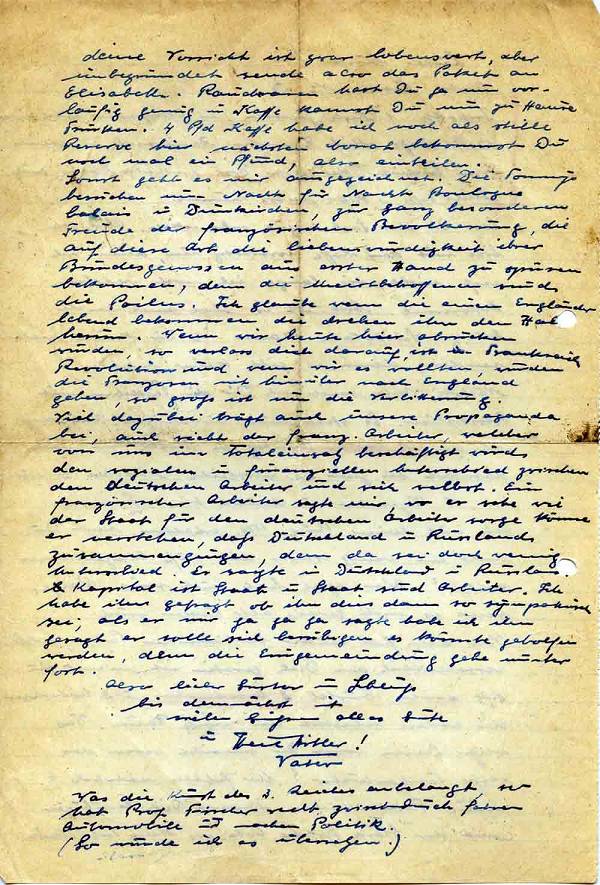 deine Vorsicht ist zwar lobenswert, aber
unbegründet sende also das Paket an
Elisabeth. Rauchwaren hast Du ja nun vor-
läufig genug u Kaffe kannst Du nun zu Hause
Trinken. 4 Pfd Kaffe habe ich noch als stille
Reserve hier nächsten Monat bekommst Du
noch mal ein Pfund, also einteilen.
Sonst geht es mir ausgezeichnet. Die Tommys
besuchen nun Nacht für Nacht Boulogne
Calais u Dünkirchen, zur ganz besonderen
Freude der französischen Bevölkerung, die
auf diese Art die Liebenswürdigkeit ihrer
Bundesgenossen aus erster Hand zu spüren
bekommen, denn die Meistbetroffenen sind
die Poilus. Ich glaube wenn die einen Engländer
lebend bekommen die drehen ihm den Hals
herum. Wenn wir heute hier abrücken
würden, so verlass dich darauf, ist in Frankreich
Revolution und wenn wir es wollten, würden
die Franzosen mit hinüber nach England
gehen, so groß ist nun die Verbitterung.
Viel dazu bei trägt auch unsere Propaganda
bei, auch sieht der franz. Arbeiter, welcher
von uns im Totaleinsatz beschäftigt wird
den sozialen u finanziellen Unterschied zwischen
dem Deutschen Arbeiter und sich selbst. Ein
französischer Arbeiter sagte mir, wo er sehe wie
der Staat für den deutschen Arbeiter sorge könne
er verstehen, daß Deutschland u Russland
zusammengingen, denn da sei doch wenig
Unterschied. Er sagte in Deutschland u Russland
& Kapital ist Staat u Staat sind Arbeiter. Ich
habe ihn gefragt ob ihm dies dann so sympatisch
sei, als er mir ja ja ja sagte habe ich ihm
gesagt er solle sich beruhigen es könnte geholfen
werden, denn die Eingemeindung gehe weiter
fort.
Also lieber u
bis demnächst ist
vielen Grüßen alles Gute
u Heil Hitler!
Vater
Was die Kunst des 3. Reiches anbelangt, so
hat Prof. Fischer recht.
Automobile u machen Politik.
(So würde ich es übersetzen.)